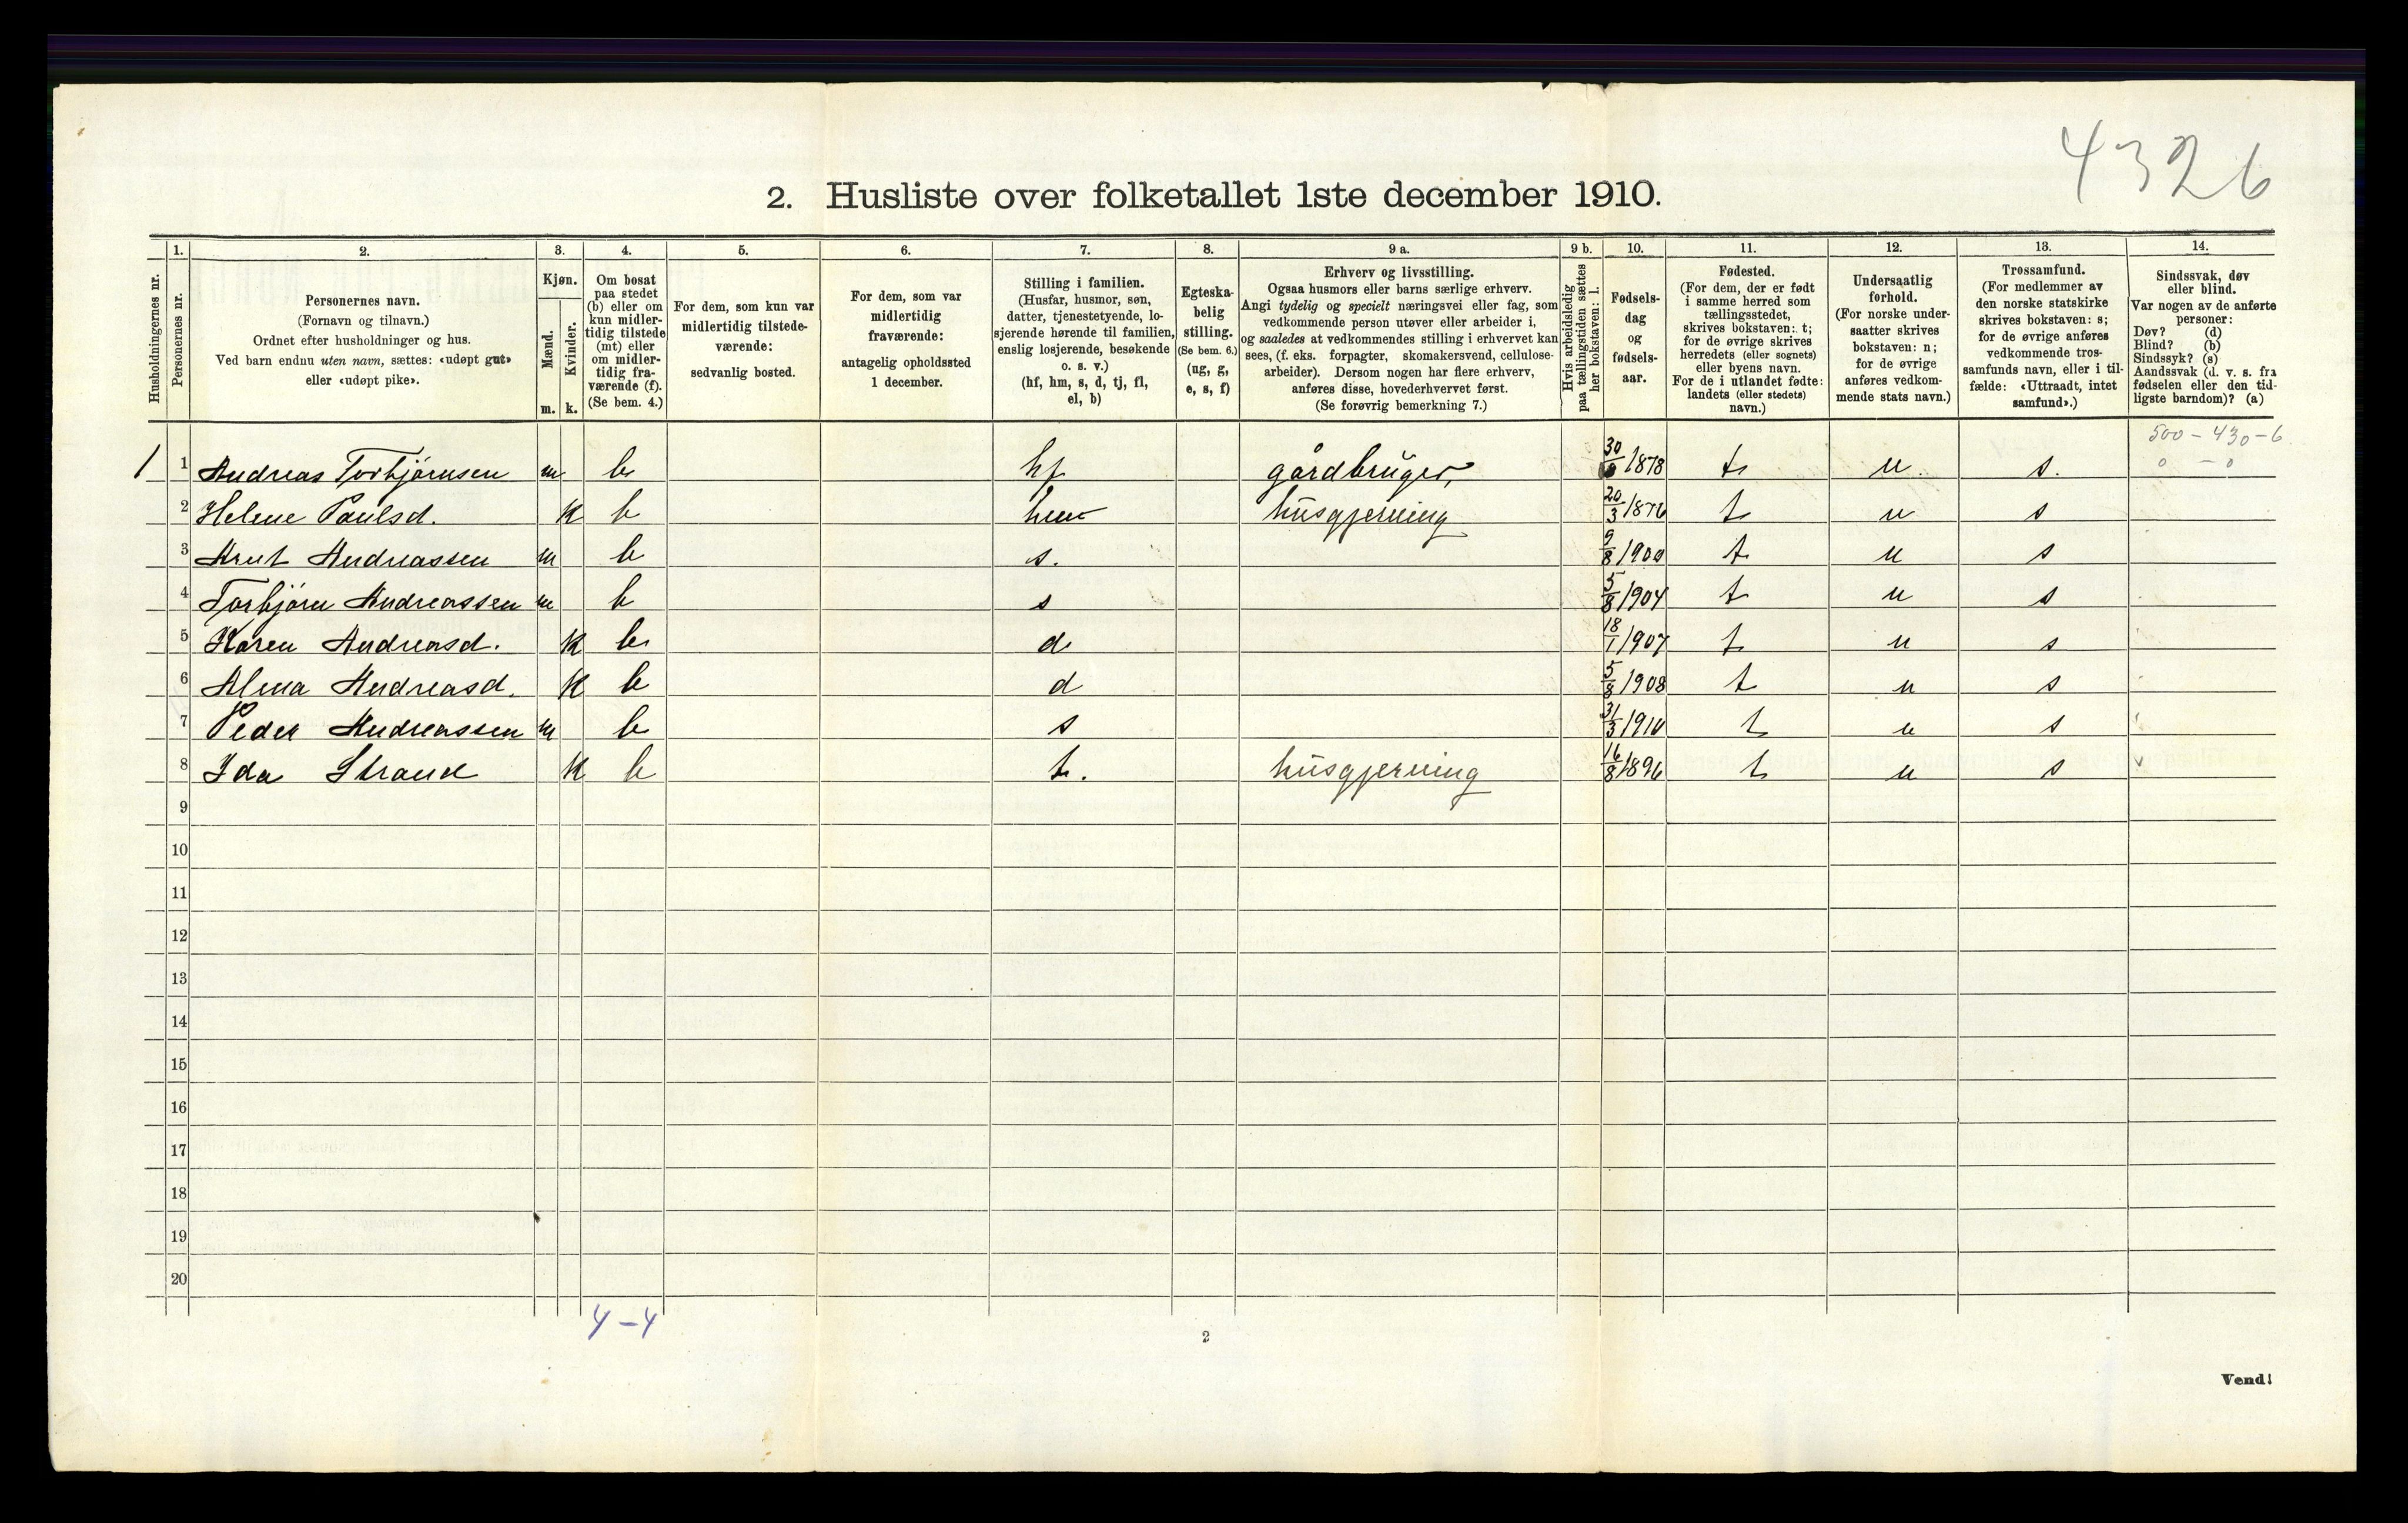 4326
2. Husliste over folketallet 1ste december 1910.
Husholdningernes nr.
1.
Personernes nr.
2.
Personernes navn.
(Fornavn og tilnavn.)
Ordnet efter husholdninger og hus.
Ved barn endnu uten navn, sættes: «udøpt gut»
eller «udøpt pike».
3.
Kjøn.
Mænd.
Kvinder.
m. k.
4.
Om bosat
paa stedet
(b) eller om
kun midler-
tidig tilstede
(mt) eller
om midler-
tidig fra-
værende (f).
(Se bem. 4.)
5.
For dem, som kun var
midlertidig tilstede-
værende:
sedvanlig bosted.
6.
For dem, som var
midlertidig
fraværende:
antagelig opholdssted
1 december.
7.
Stilling i familien.
(Husfar, husmor, søn,
datter, tjenestetyende, lo-
sjerende hørende til familien,
enslig losjerende, besøkende
o. s. v.)
(hf, hm, s, d, tj, fl,
el, b)
8.
Egteska-
belig
stilling.
(Se bem. 6.)
(ug, g,
e, s, f)
9 a.
Erhverv og livsstilling.
Ogsaa husmors eller barns særlige erhverv.
Angi tydelig og specielt næringsvei eller fag, som
vedkommende person utøver eller arbeider i,
og saaledes at vedkommendes stilling i erhvervet kan
sees, (f. eks. forpagter, skomakersvend, cellulose-
arbeider). Dersom nogen har flere erhverv,
anføres disse, hovederhvervet først.
(Se forøvrig bemerkning 7.)
9 b.
Hvis arbeidsledig
paa tællingstiden sættes
her bokstaven: l.
10.
Fødsels-
dag
og
fødsels-
aar.
11.
Fødested.
(For dem, der er født
i samme herred som
tællingsstedet,
skrives bokstaven: t;
for de øvrige skrives
herredets (eller sognets)
eller byens navn.
For de i utlandet fødte:
landets (eller stedets)
navn.)
12.
Undersaatlig
forhold.
(For norske under-
saatter skrives
bokstaven: n;
for de øvrige
anføres vedkom-
mende stats navn.)
13.
Trossamfund.
(For medlemmer av
den norske statskirke
skrives bokstaven: s;
for de øvrige anføres
vedkommende tros-
samfunds navn, eller i til-
fælde: «Uttraadt, intet
samfund».)
14.
Sindssvak, døv
eller blind.
Var nogen av de anførte
personer:
Døv? (d)
Blind? (b)
Sindssyk? (s)
Aandssvak (d. v. s. fra
fødselen eller den tid-
ligste barndom)? (a)
500 - 430 - 6
0 - 0
1 1 Andreas Torbjørnsen m b hf gårdbruger, 30/ 1878 t n s.
2 Helene Paulsd. k b hm husgjerning 20/3 1876 t n s
3 Knut Andreassen m b s. 9/8 1900 t n s
4 Torbjørn Andreassen m b s 5/8 1904 t n s
5 Karen Andreasd. k b d 18/1 1907 t n s
6 Alma Andreasd. k b d 5/8 1908 t n s
7 Peder Andreassen m b s 31/3 1910 t n s
8 Ida Strand k b t. husgjerning 16/8 1896 t n s
9
10
11
12
13
14
15
16
17
18
19
20
4 - 4
2
Vend!